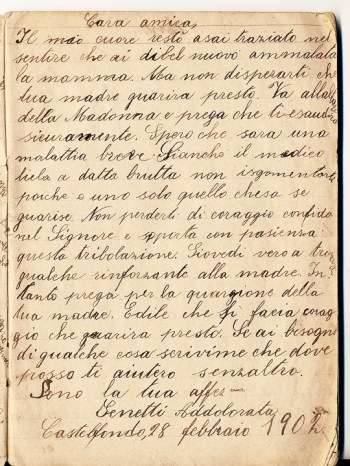 Cara amica,
Il mio cuore restò asai straziato nel
sentire che ai di bel nuovo ammalata
la mamma. Ma non disperarti che
tua madre guarira presto. Va all'altar
della Madonna e prega che ti esaudira
sicuramente. Spero che sara una
malattia breve Sianche il medico
tiela a datta brutta non isgomentarti
poiche e uno solo quello chesa se
guarise. Non perderti di coraggio confida
nel Signore e soporta con pasienza
questa tribolazione. Giovedi vero a trovare
qualche rinforzante alla madre. In
tanto prega per la guarigione della
tua madre. Edile che si facia corag
gio che guarira presto. Se ai besogno
di qualche cosa scrivime che dove
posso ti aiutero senz'altro.
Sono la tua affez
Genetti Addolorata
Castelfondo, 28 febbraio 1902